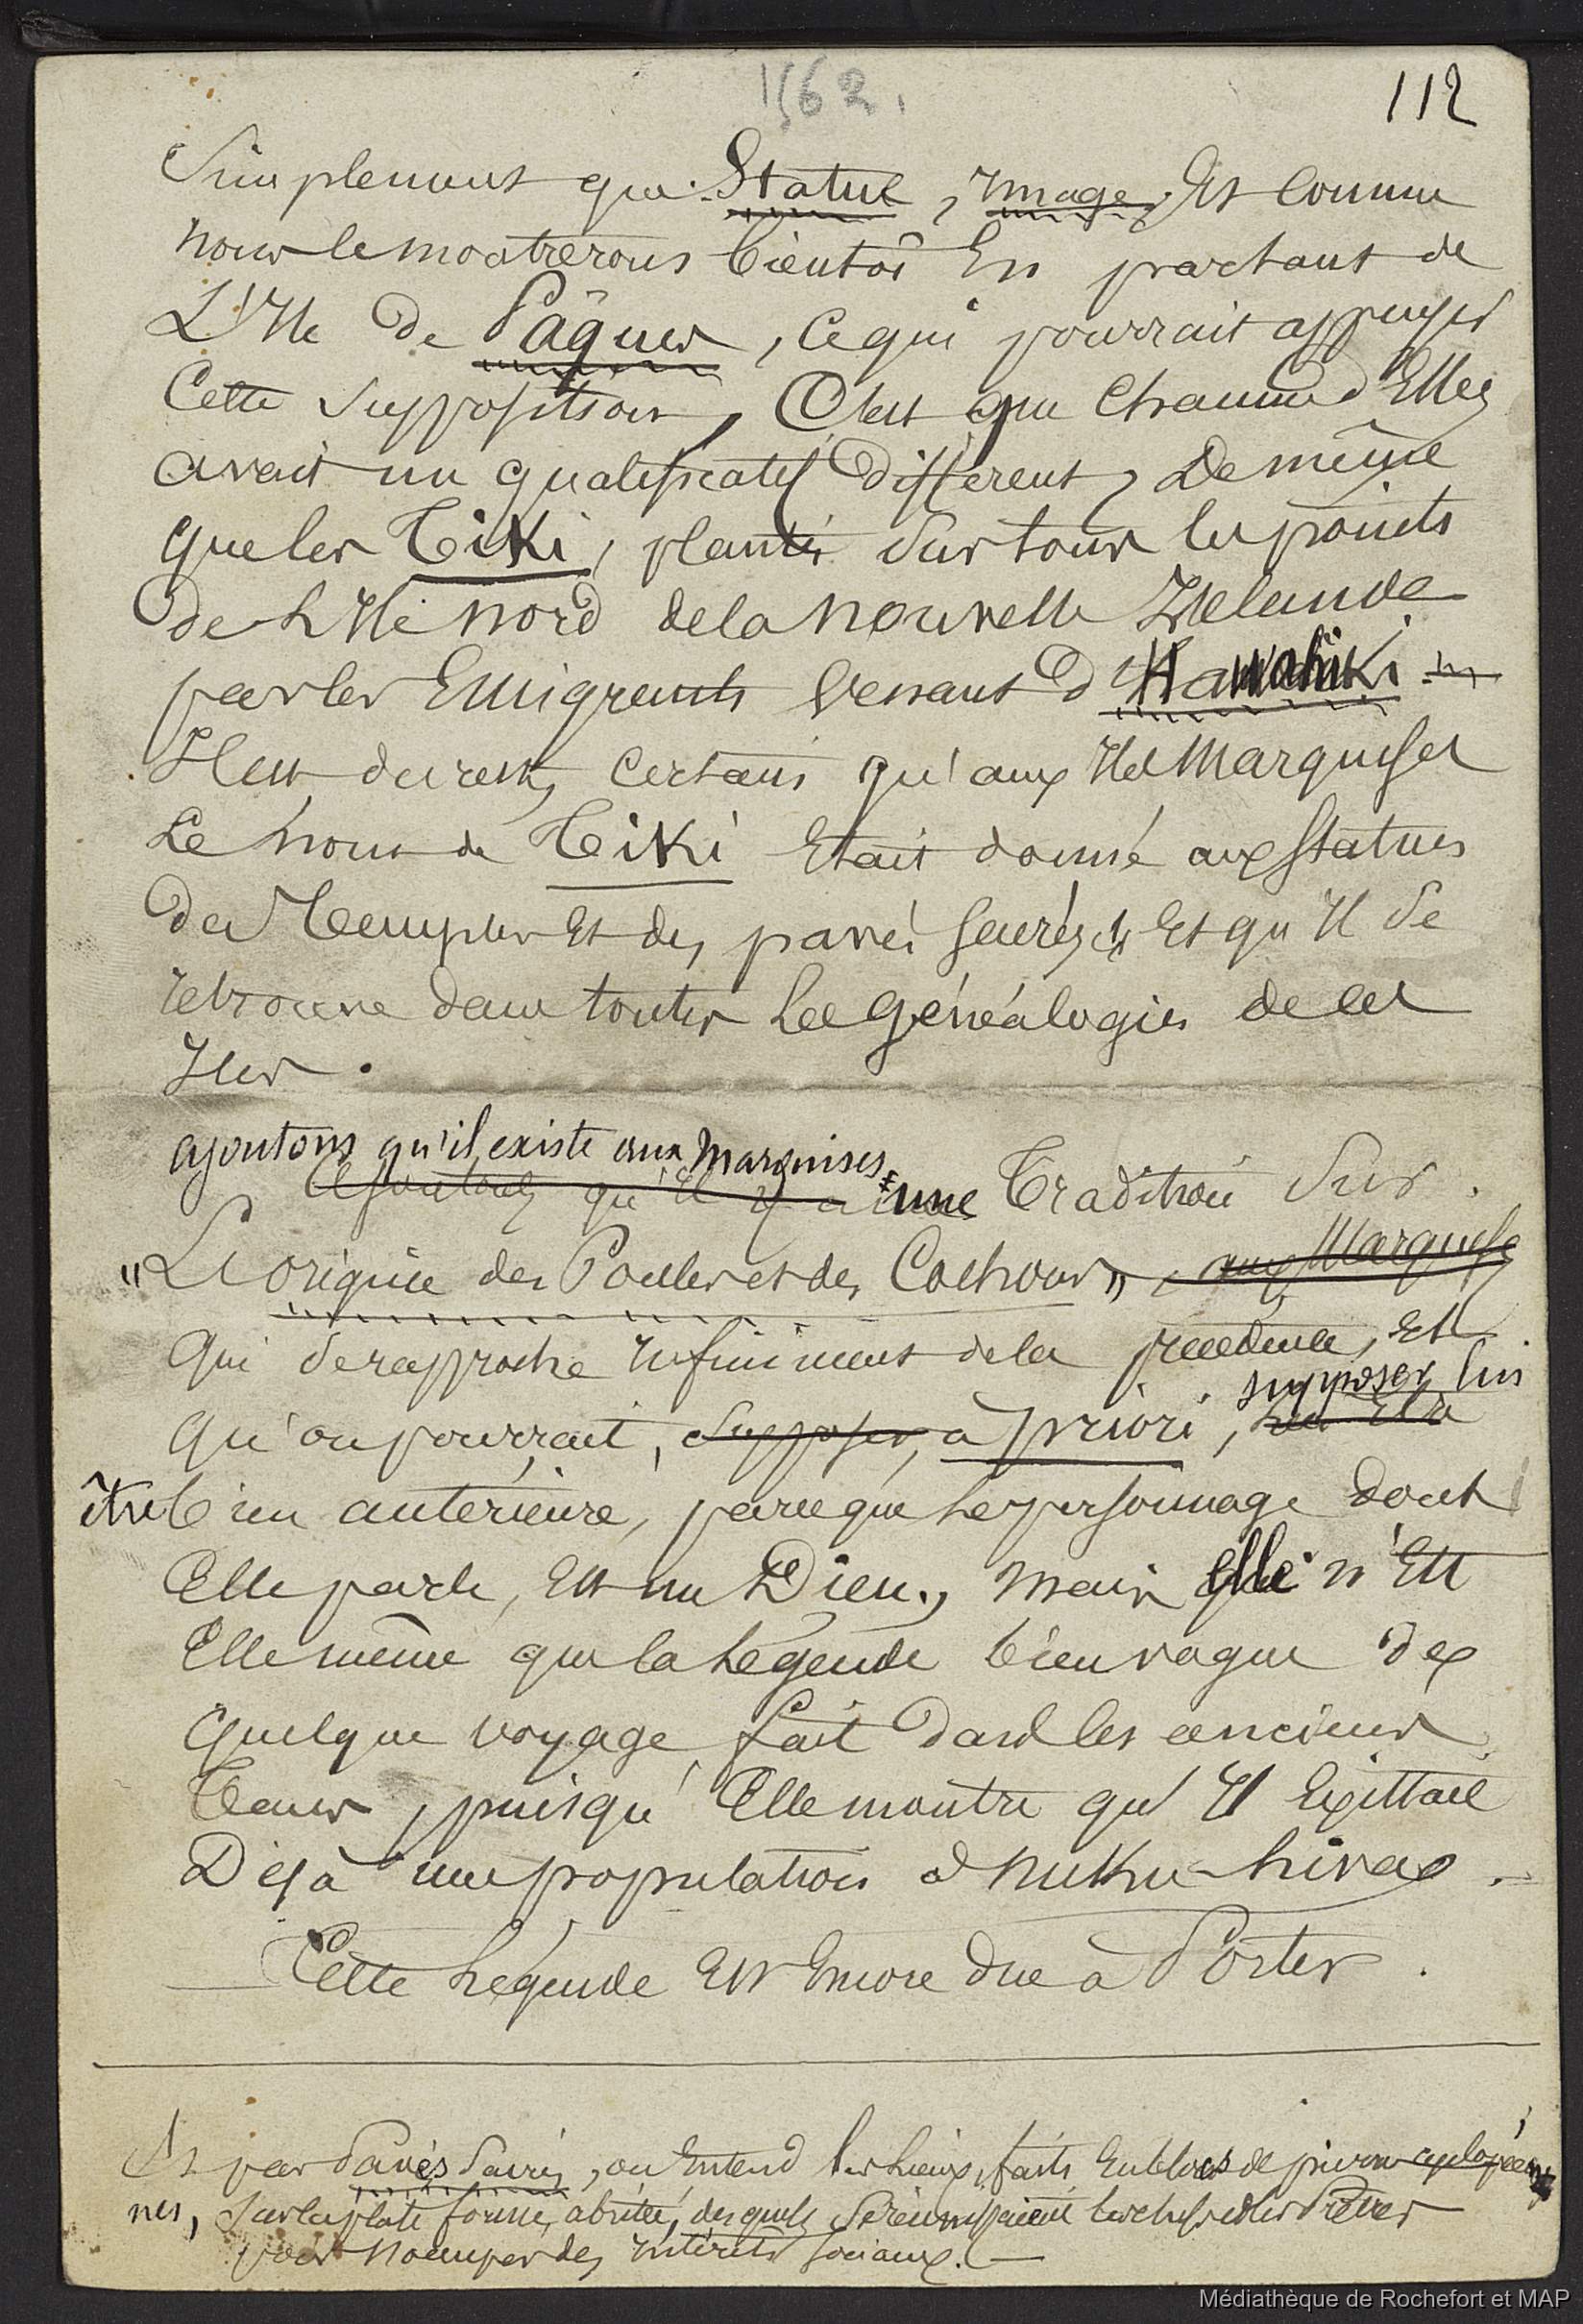 1562.
112
Simplement que Statue, Image, Et Comme
nous le montrerons bientôt En partant de
L'Ile de Pâques, ce qui pourrait appuyer
Cette Supposition, C'est que Chacune d'Elles
avait un qualificatif différent, De même
que les Tiki, plantés Sur tous les points
de L'Ile nord de la nouvelle Zélande
par les Emigrants Venant d'Hawahiki
Il est, du reste, certain qu'aux Iles Marquises
Le nom de Tiki Etait donné aux Statues
des Temples Et des pavés Sacrés, (1) Et qu'Il Se
retrouve dans toutes Les généalogies de ces
Iles.
ajoutons qu'il existe aux Marquises
Ajoutons qu'Il y a une Tradition Sur
"L'origine des Poules et des Cochons", aux Marquises
qui Se rapproche Infiniment de la précédente, Et
supposer lui
qu'on pourrait, Supposer, à priori,
être bien antérieure, parceque Le personnage dont
Elle parle, Est un Dieu, mais Elle n'Est
Elle même que la Légende bien vague de
quelque voyage fait dans les anciens
Tems, puisqu'Elle montre qu'Il Existait
Déjà une population à nuku-hiva.
Cette Légende Est Encore due à Porter.
(1) par Pavés Sacrés, on Entend les lieux, faits En blocs de pierres cyclopéen-
nes, Sur la plate forme, abritée, desquels Se réunissaient les chefs et les Prêtres
pour s'occuper des intérêts Sociaux. —
Médiathèque de Rochefort et MAP